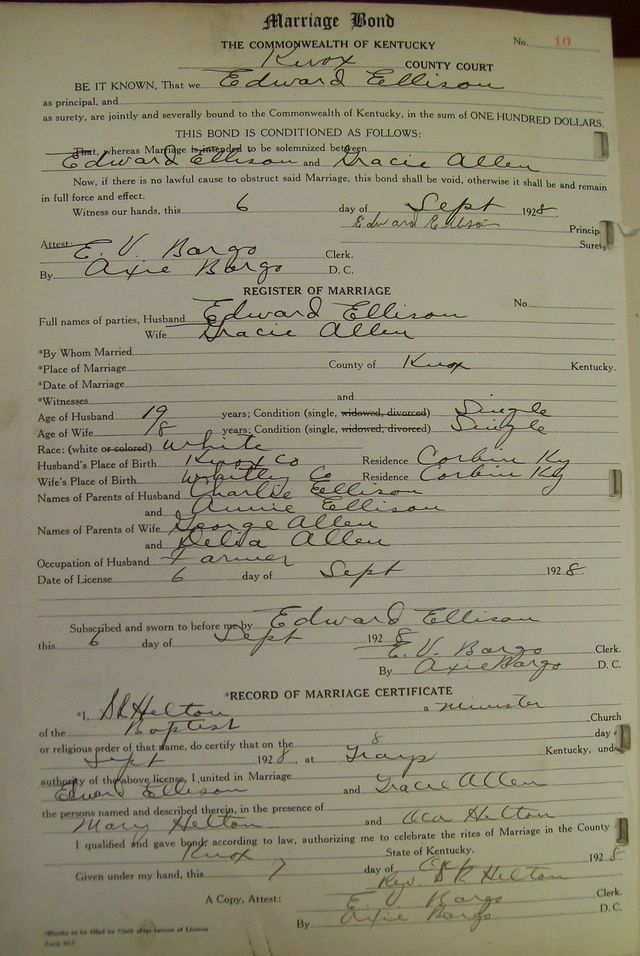 Marriage Bond
THE COMMONWEALTH OF KENTUCKY No. 10
Knox COUNTY COURT
BE IT KNOWN, That we Edward Ellison
as principal, and
as surety, are jointly and severally bound to the Commonwealth of Kentucky, in the sum of ONE HUNDRED DOLLARS.
THIS BOND IS CONDITIONED AS FOLLOWS:
That, whereas Marriage is intended to be solemnized between
Edward Ellison and Gracie Allen
Now, if there is no lawful cause to obstruct said Marriage, this bond shall be void, otherwise it shall be and remain
in full force and effect.
Witness our hands, this 6 day of Sept 1928.
Edward Princip
Surety
Attest: E. V. Bargo Clerk.
By Axie Bargo D. C.
REGISTER OF MARRIAGE
Full names of parties, Husband Edward Ellison No
Wife Gracie Allen
*By Whom Married
*Place of Marriage County of Knox Kentucky.
*Date of Marriage
*Witnesses and
Age of Husband 19 years; Condition (single, widowed, divorced) Single
Age of Wife 18 years; Condition (single, widowed, divorced) Single
Race: (white or colored) white
Husband's Place of Birth Knox Co Residence Corbin Ky
Wife's Place of Birth Whitley Co Residence Corbin Ky
Names of Parents of Husband Charlie Ellison
and Annie Ellison
Names of Parents of Wife George Allen
and Delia Allen
Occupation of Husband Farmer
Date of License 6 day of Sept 1928.
Subscribed and sworn to before me by Edward Ellison
this 6 day of Sept 1928
E. V. Bargo Clerk.
By Axie Bargo D. C.
*RECORD OF MARRIAGE CERTIFICATE
*I, S R Helton a Minister
of the Baptist Church
or religious order of that name, do certify that on the 8 day
Sept 1928, at Grays Kentucky, unde
authority of the above license, I united in Marriage
Edward Ellison and Gracie Allen
the persons named and described therein, in the presence of
Mary Helton and Oca Helton
I qualified and gave bond, according to law, authorizing me to celebrate the rites of Marriage in the County
Knox State of Kentucky.
Given under my hand, this 7 day of 1928
Rev S R Helton
A Copy, Attest: E. V. Bargo Clerk.
By Axie Bargo D. C.
*Blanks to be filled by Clerk after return of License